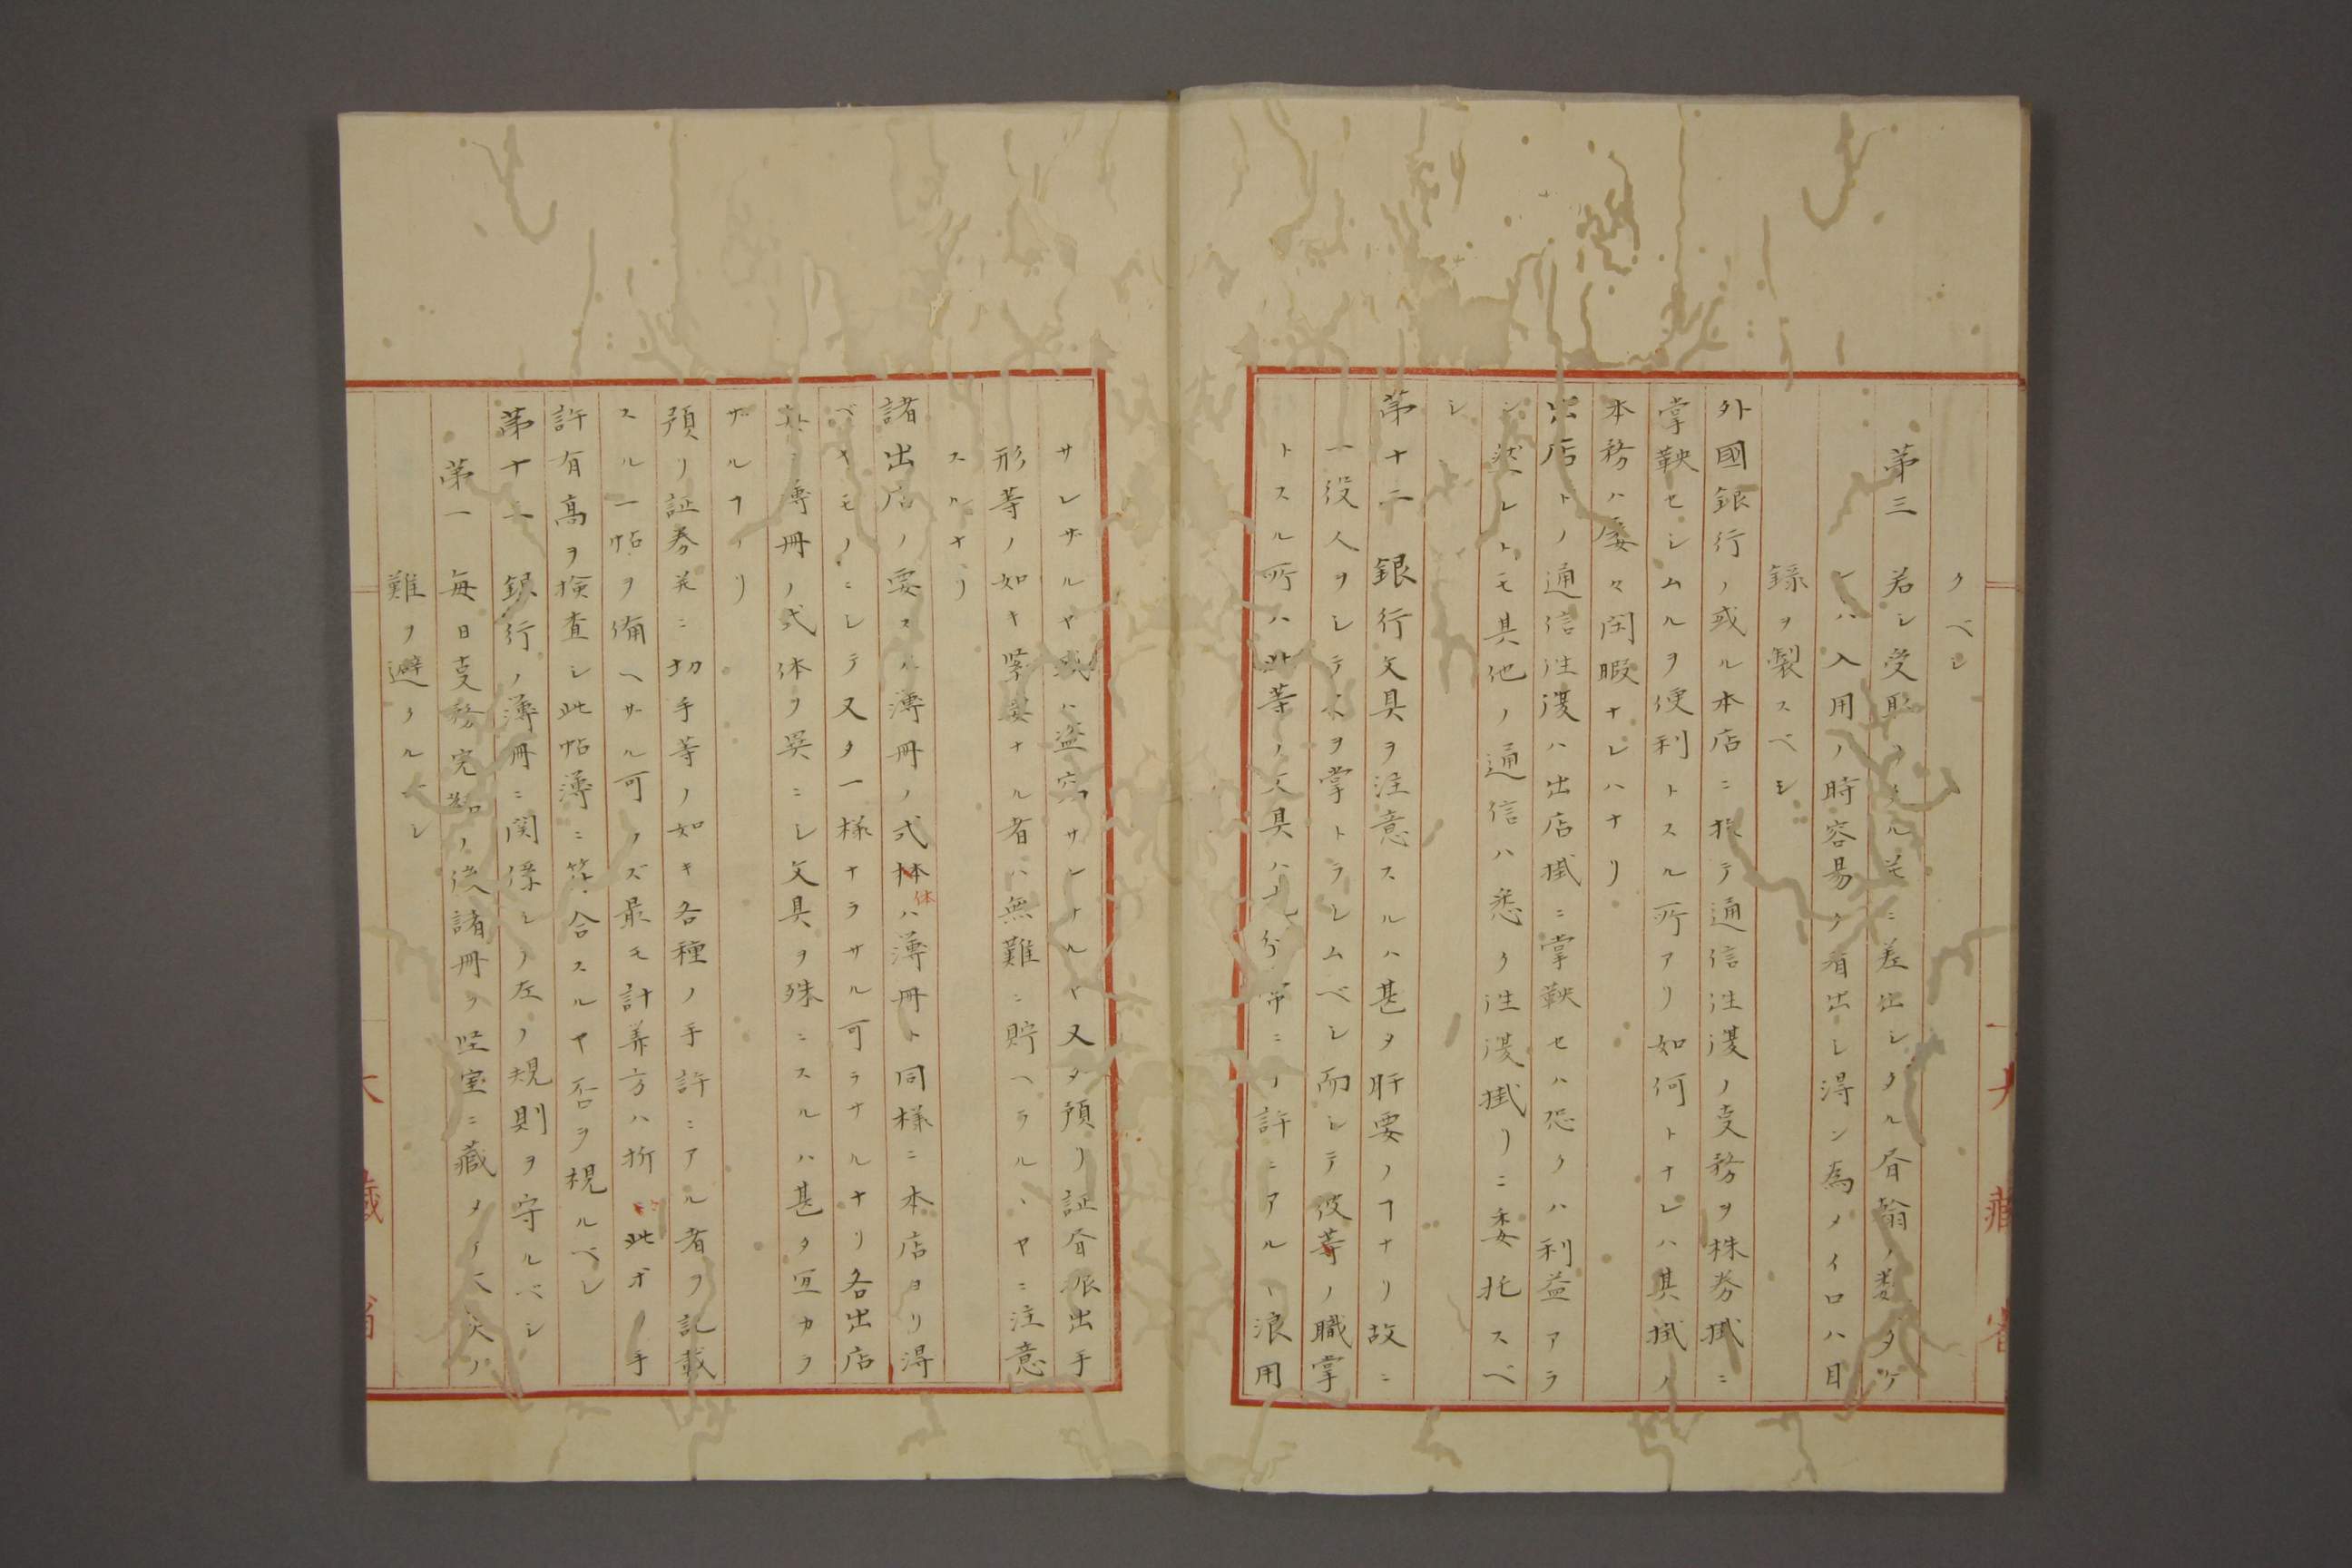 クベシ
第三 若シ受取タル并ニ差出シタル書翰ノ委タケ
レハ入用ノ時容易ク看出シ得ン為メイロハ目
録ヲ製スベシ
外國銀行ノ或ル本店ニ於テ通信往復ノ支務ヲ株券掛ニ
掌鞅セシムルヲ便利トスル所アリ如何トナレハ其掛ノ
本務ハ屡々閑暇ナレハナリ
出店トノ通信往復ハ出店掛ニ掌鞅セハ恐クハ利益アラ
ン然レトモ其他ノ通信ハ悉ク往復掛リニ委托スベ
シ
第十二 銀行文具ヲ注意スルハ甚タ肝要ノヿナリ故ニ
一役人ヲシテ之ヲ掌トラシムベシ而シテ彼等ノ職掌
トスル所ハ此等ノ文具ハ十分ニ許ニアル丶浪用
サレザルヤ或ハ盗窃サレサルヤ又タ預リ証書振出手
形等ノ如キ緊要ナル者ハ無難ニ貯ヘラルヽヤニ注意
スルナリ
諸出店ノ要スル薄冊ノ式体ハ薄冊ト同様ニ本店ヨリ得
ベキモノニシテ又タ一様ナラサル可ラサルナリ各出店
共ニ薄冊ノ式体ヲ異ニシ文具ヲ殊ニスルハ甚タ宜カラ
ザルヿナリ
預リ証券并ニ切手等ノ如キ各種ノ手許ニアル者ヲ記載
スル一帖ヲ備ヘサル可ラズ最モ計算方ハ折々此オノ手
許有高ヲ検査シ此帖薄ニ符合スルヤ否ヲ視ルベシ
第十三 銀行ノ薄冊ニ関係シテ左ノ規則ヲ守ルベシ
第一 毎日支務完結ノ後諸冊ヲ堅室ニ蔵メテ火災ノ
難ヲ避クルベシ
大藏省